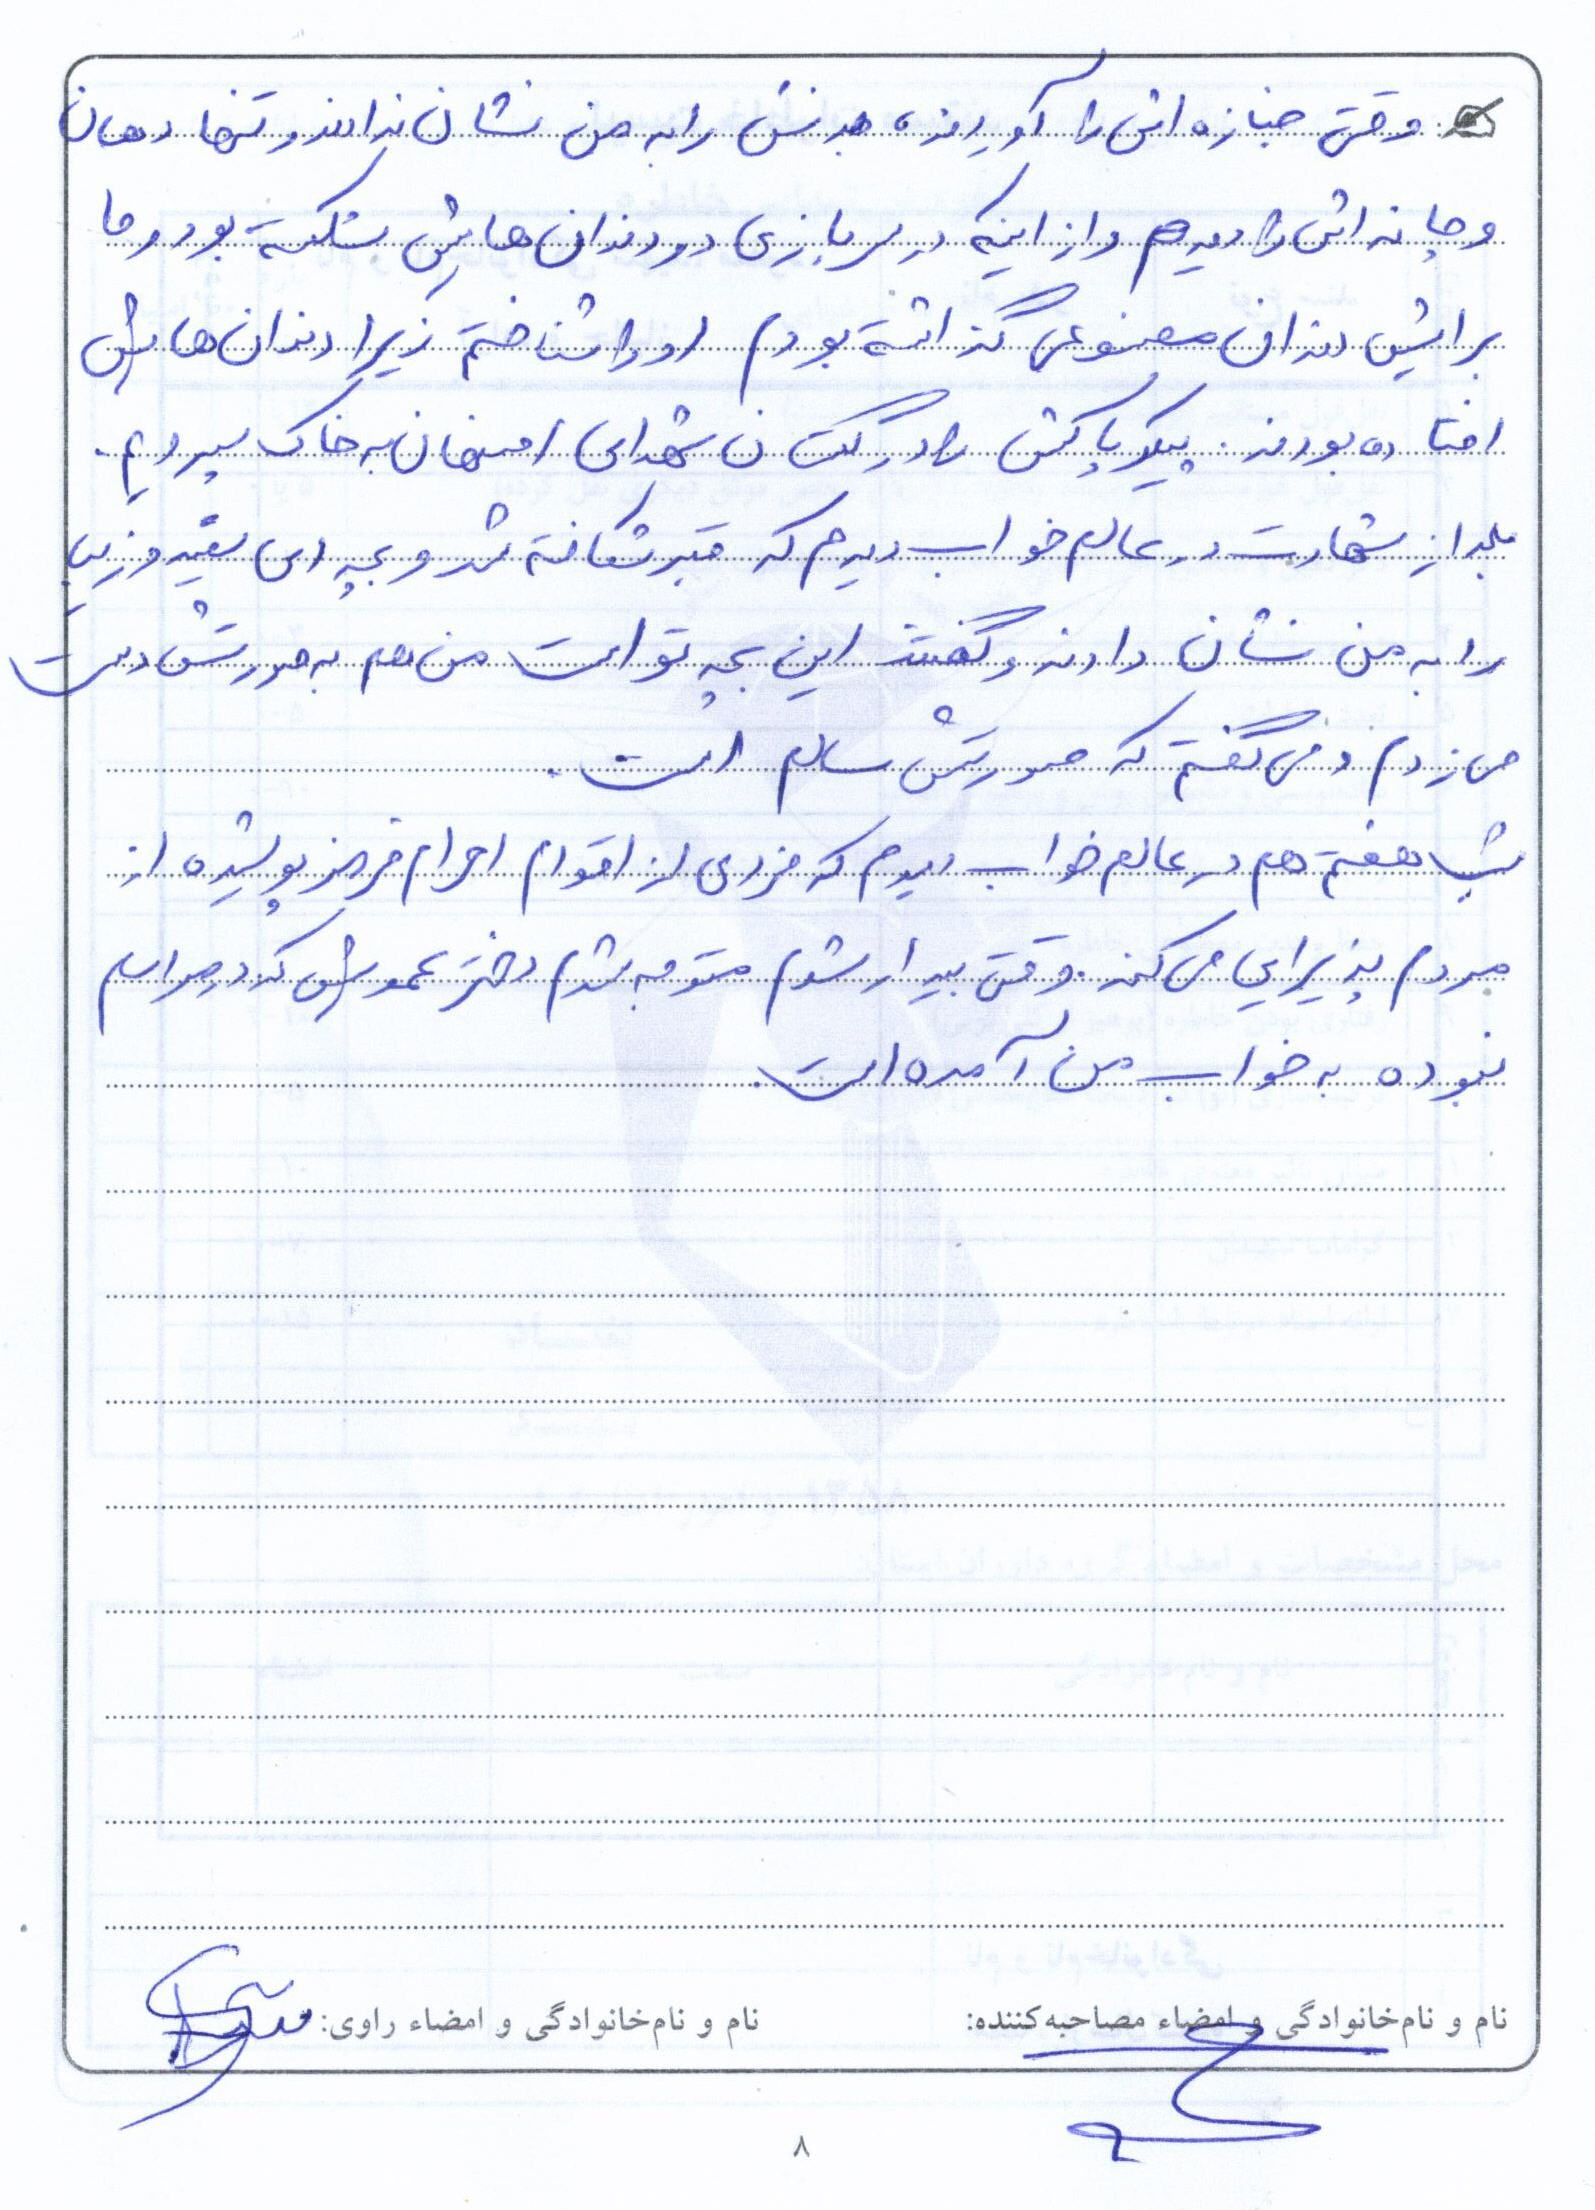 وقتی جنازه اش را آوردند، بدنش را به من نشان ندادند و تنها دهان
و چانه اش را دیدم و از اینکه در سربازی دو دندان هایش شکسته بود و ما
برایش دندان مصنوعی گذاشته بودم او را شناختم زیرا دندان هایش
افتاده بودند. پیکر پاکش را در گلستان شهدای اصفهان به خاک سپردیم.
بعد از شهادت در عالم خواب دیدم که قبر شکافته شد و بچه ای سفید و زیبا
را به من نشان دادند و گفتند این بچه تو است من هم به صورتش دست
می زدم و می گفتم که صورتش سالم است.
شب هفتم هم در عالم خواب دیدم که فردی از اقوام احرام قرمز پوشیده از
مردم پذیرایی می کند. وقتی بیدار شدم متوجه شدم دختر عمویش که در مراسم
نبوده به خواب من آمده است.
نام و نام‌خانوادگی و امضاء مصاحبه‌کننده:
نام و نام‌خانوادگی و امضاء راوی:
۸